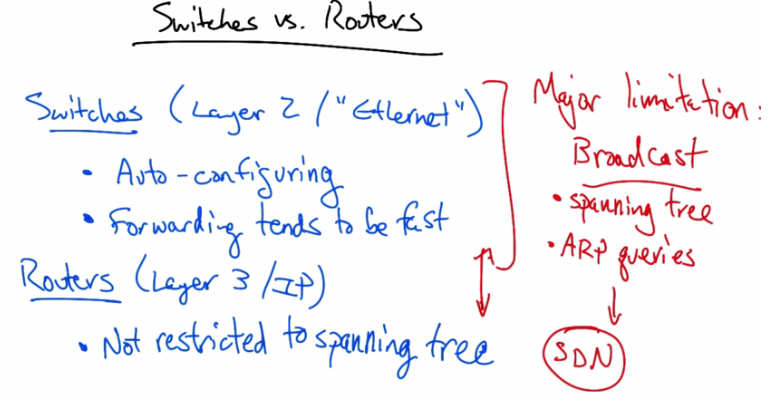 Switches vs. Routers
Switches (Layer 2 / "Ethernet")
• Auto-configuring
• Forwarding tends to be fast
Routers (Layer 3 / IP)
• Not restricted to spanning tree
Major limitation:
Broadcast
• spanning tree
• ARP queries
SDN